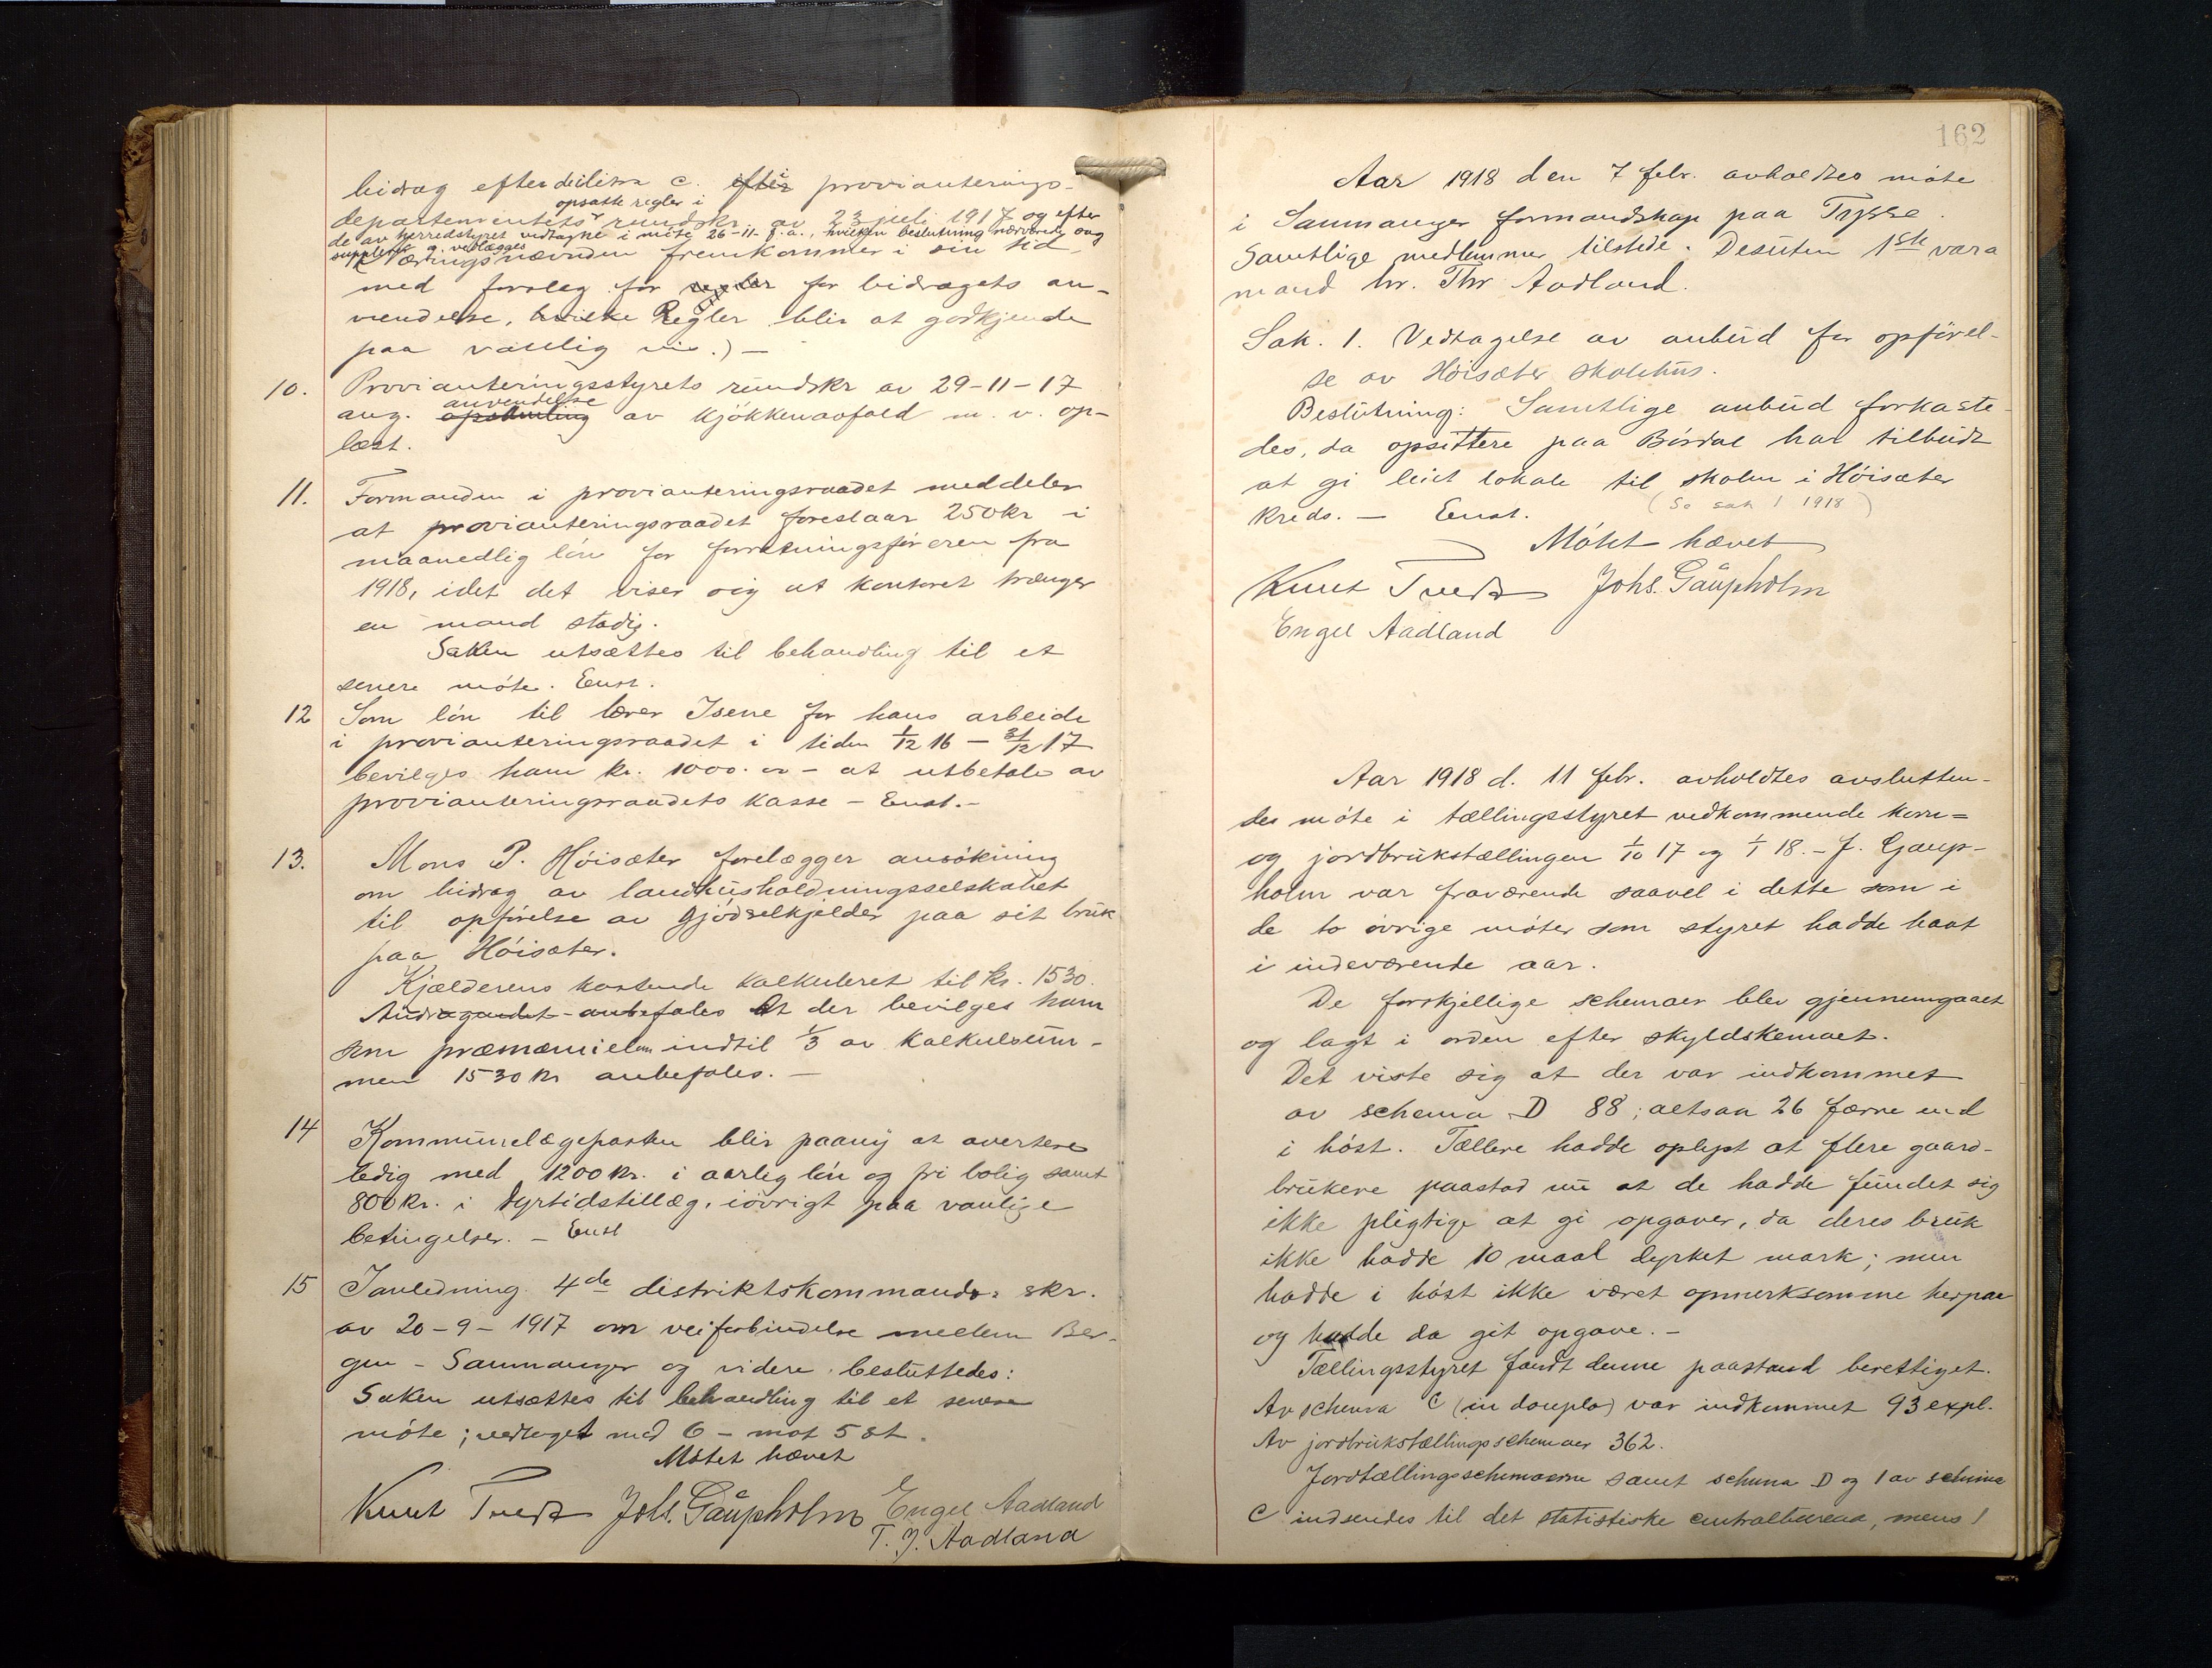 bidrag efter c. efter i provianterings-
opsatte regler i
departementets rundskr. av 23 juli 1917 og efter
de av herredstyret vedtagne i møte 26-11-f.a., hvilken beslutning nærværende ang
supplerer g. vedlægges
næringsnævnden fremkommer i sin tid
med forslag for regler for bidragets an-
vendelse, hvilke Regler blir at godkjende
paa vanlig vis.) —
10. Provianteringsstyrets rundskr av 29-11-17
anvendelse
ang. opsamling av kjøkkenavfald m. v. op-
læst.
11. Formanden i provianteringsraadet meddeler
at provianteringsraadet foreslaar 250 kr i
maanedlig løn for forretningsføreren fra
1918, idet det viser sig at kontoret trænger
en mand stadig.
Saken utsættes til behandling til et
senere møte. Enst.
12 Som løn til lærer Isene for hans arbeide
i provianteringsraadet i tiden 1/12 16 – 31/12 17
bevilges ham kr. 1000.oo – at utbetale av
provianteringsraadets kasse – Enst.–
13. Mons P. Høisæter forelægger ansøkning
om bidrag av landhusholdningsselskabet
til opførelse av gjødselkjelder paa sit bruk
paa Høisæter.
Kjælderens kostende kalkuleret til kr. 1530.
Andragendet – anbefales At der bevilges ham
som præmie indtil 1/3 av kalkulsum-
men 1530 kr anbefales. –
14 Kommunelægeposten blir paany at avertere
ledig med 1200 kr. i aarlig løn og fri bolig samt
800 kr. i dyrtidstillæg, iøvrigt paa vanlige
betingelser. – Enst
15 I anledning 4de distriktskommandos skr.
av 20-9-1917 om veiforbindelse mellem Ber-
gen – Samnanger og videre besluttedes:
Saken utsættes til behandling til et senere
møte; vedtaget med 6 – mot 5 st.
Møtet hævet
Knut Tveit Johs. Gaupholm Engel Aadland
T. J. Aadland
162
Aar 1918 den 7 febr. avholdtes møte
i Samnanger formandskap paa Tysse.
Samtlige medlemmer tilstede. Desuten 1ste vara
mand hr. Thr Aadland.
Sak. 1. Vedtagelse av anbud for opførel-
se av Høisæter skolehus.
Beslutning: Samtlige anbud forkaste-
des, da opsittere paa Børdal har tilbudt
at gi leiet lokale til skolen i Høisæter
kreds. – Enst. (Se sak 1 1918)
Møtet hævet
Knut Tveit Johs. Gaupholm
Engel Aadland
Aar 1918 d. 11 febr. avholdtes avslutten-
des møte i tællingsstyret vedkommende korn=
og jordbrukstællingen 1/10 17 og 1/1 18. – J. Gaup-
holm var fraværende saavel i dette som i
de to øvrige møter som styret hadde havt
i indeværende aar.
De forskjellige schemaer blev gjennemgaaet
og lagt i orden efter skyldskemaet.
Det viste sig at der var indkommet
av schema D 88; altsaa 26 færre end
i høst. Tællere hadde oplyst at flere gaard-
brukere paastod nu at de hadde fundet sig
ikke pligtige at gi opgaver, da deres bruk
ikke hadde 10 maal dyrket mark; men
hadde i høst ikke været opmerksomme herpaa
og hadde da git opgave. –
Tællingsstyret fandt denne paastand berettiget.
Av schema C (in douplo) var indkommet 93 expl.
Av jordbrukstællingsschemaer 362.
Jordtællingsschemaerne samt schema D og 1 av schema
C indsendes til det statistiske centralbureau, mens 1